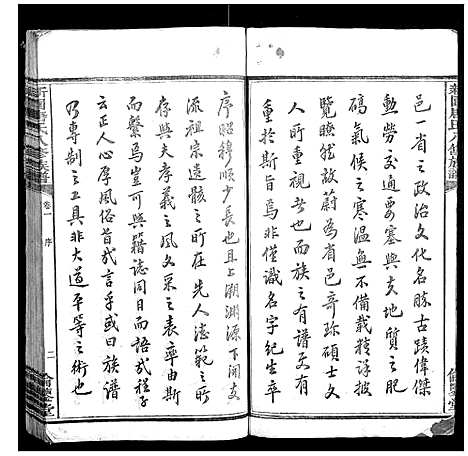 邑一省之政治文化名勝古蹟偉傑
勳勞交通要塞與夫地質之肥
磽氣候之寒温無不備載精詳披
覽瞭然故蔚為省邑奇珍碩士文
人而重視者也而族之有譜又有
重於斯旨焉非僅識名字紀生卒
序昭穆順少長也且上溯淵源下闡支
流祖宗遺骸之所在先人德範之所
存與夫孝義之風文藻之表率由斯
而繫焉豈可與籍誌同日而語哉程子
云正人心厚風俗旨哉言乎或曰族譜
乃專制之工具非大道平等之術也
卷一 序 二